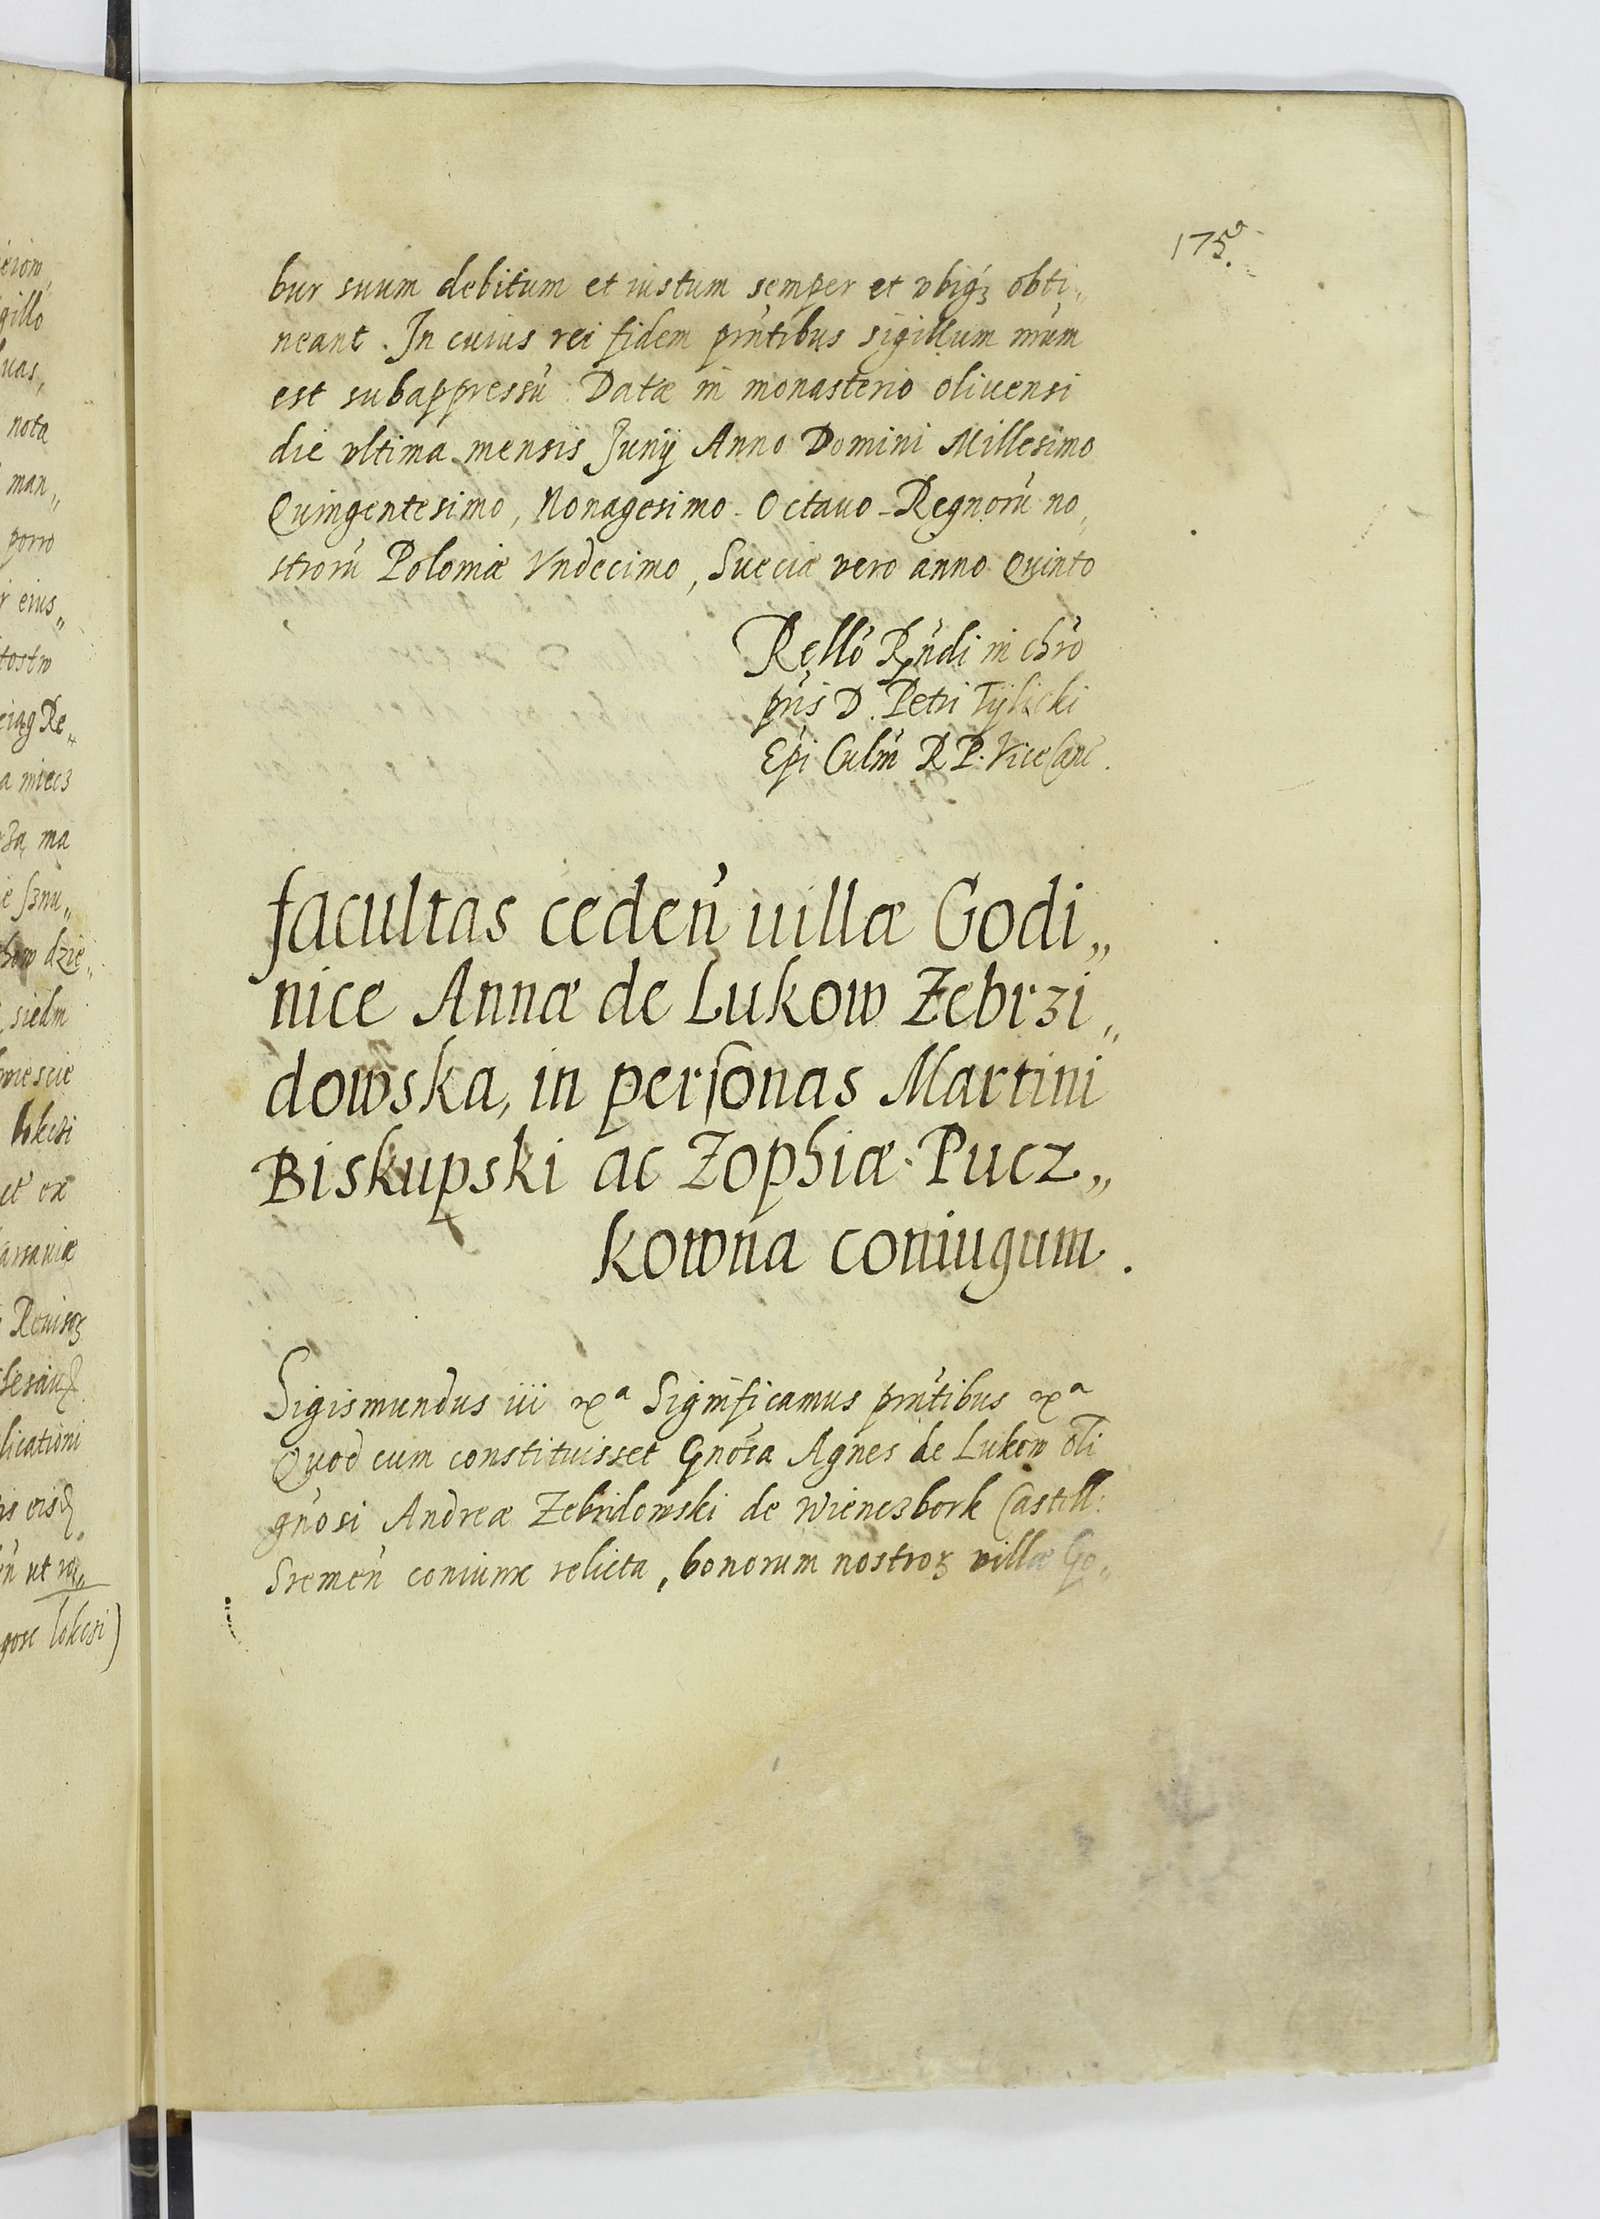 175.
bur suum debitum et iustum semper et vbiqȝ obti„
neant. In cuius rei fidem pñtibus sigillum nr̃um
est subappressũ Datæ in monasterio oliuensi
die vltima mensis Junij Anno Domini Millesimo
Quingentesimo, Nonagesimo Octauo Regnorũ no„
strorũ Poloniæ Vndecimo, Sueciæ vero anno Quinto
Rello Rñdi in chr̃o
pr̃is D. Petri Tylicki
Epi Culm̃ R P. Vice Canc̃.
facultas cedeñ uillæ Godi„
nice Annæ de Lukow Zebrzi„
dowska, in personas Martini
Biskupski ac Zophiæ Pucz„
kowna coniugum.
Sigismundus iii ꝛcª Significamus pñtibus ꝛcª
Quod cum constituisset Gnõsa Agnes de Lukow oli
gñosi Andreæ Zebridowski de Wienczbork Castell:
Sremeñ coniunx relicta, bonorum nostroꝝ villæ Go„
eiom,
gillo
uas,
nota
man„
porro
r eius„
tostw
eiag Re„
a miecz
za, ma
e sznu„
how dzie„
siedm
lokcsi
et ex
licationi
lokcsi)